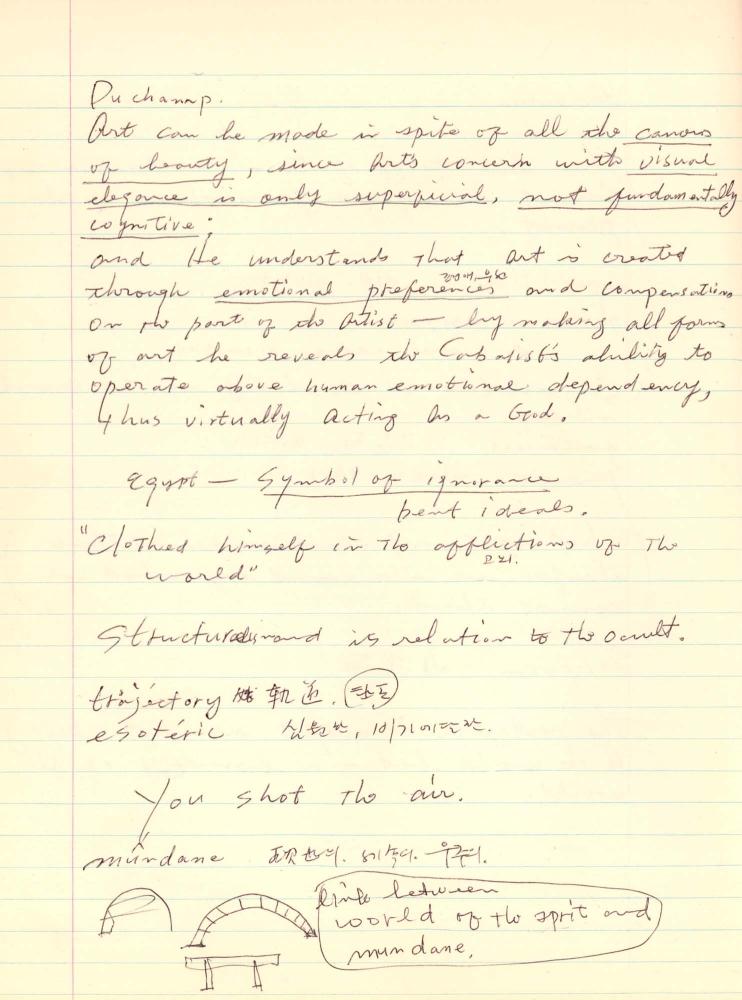 Duchamp.
Art can be made in spite of all the canons
of beauty, since Art's concern with visual
elegance is only superficial, not fundamentally
cognitive;
and He understands that art is created
through emotional preferences and compensations
on the part of the Artist — by making all forms
of art he reveals the Cabalist's ability to
operate above human emotional dependency,
thus virtually acting As a God.
Egypt — Symbol of ignorance
bent ideals.
"Clothed himself in the afflictions of the
world"
Structuralism and is relation to the occult.
trajectory 軌道. 탄도
esoteric 심원한, 비기에 달한.
You shot the air.
mundane 현세의. 세속의. 우주의.
link between
world of the sprit and
mundane.